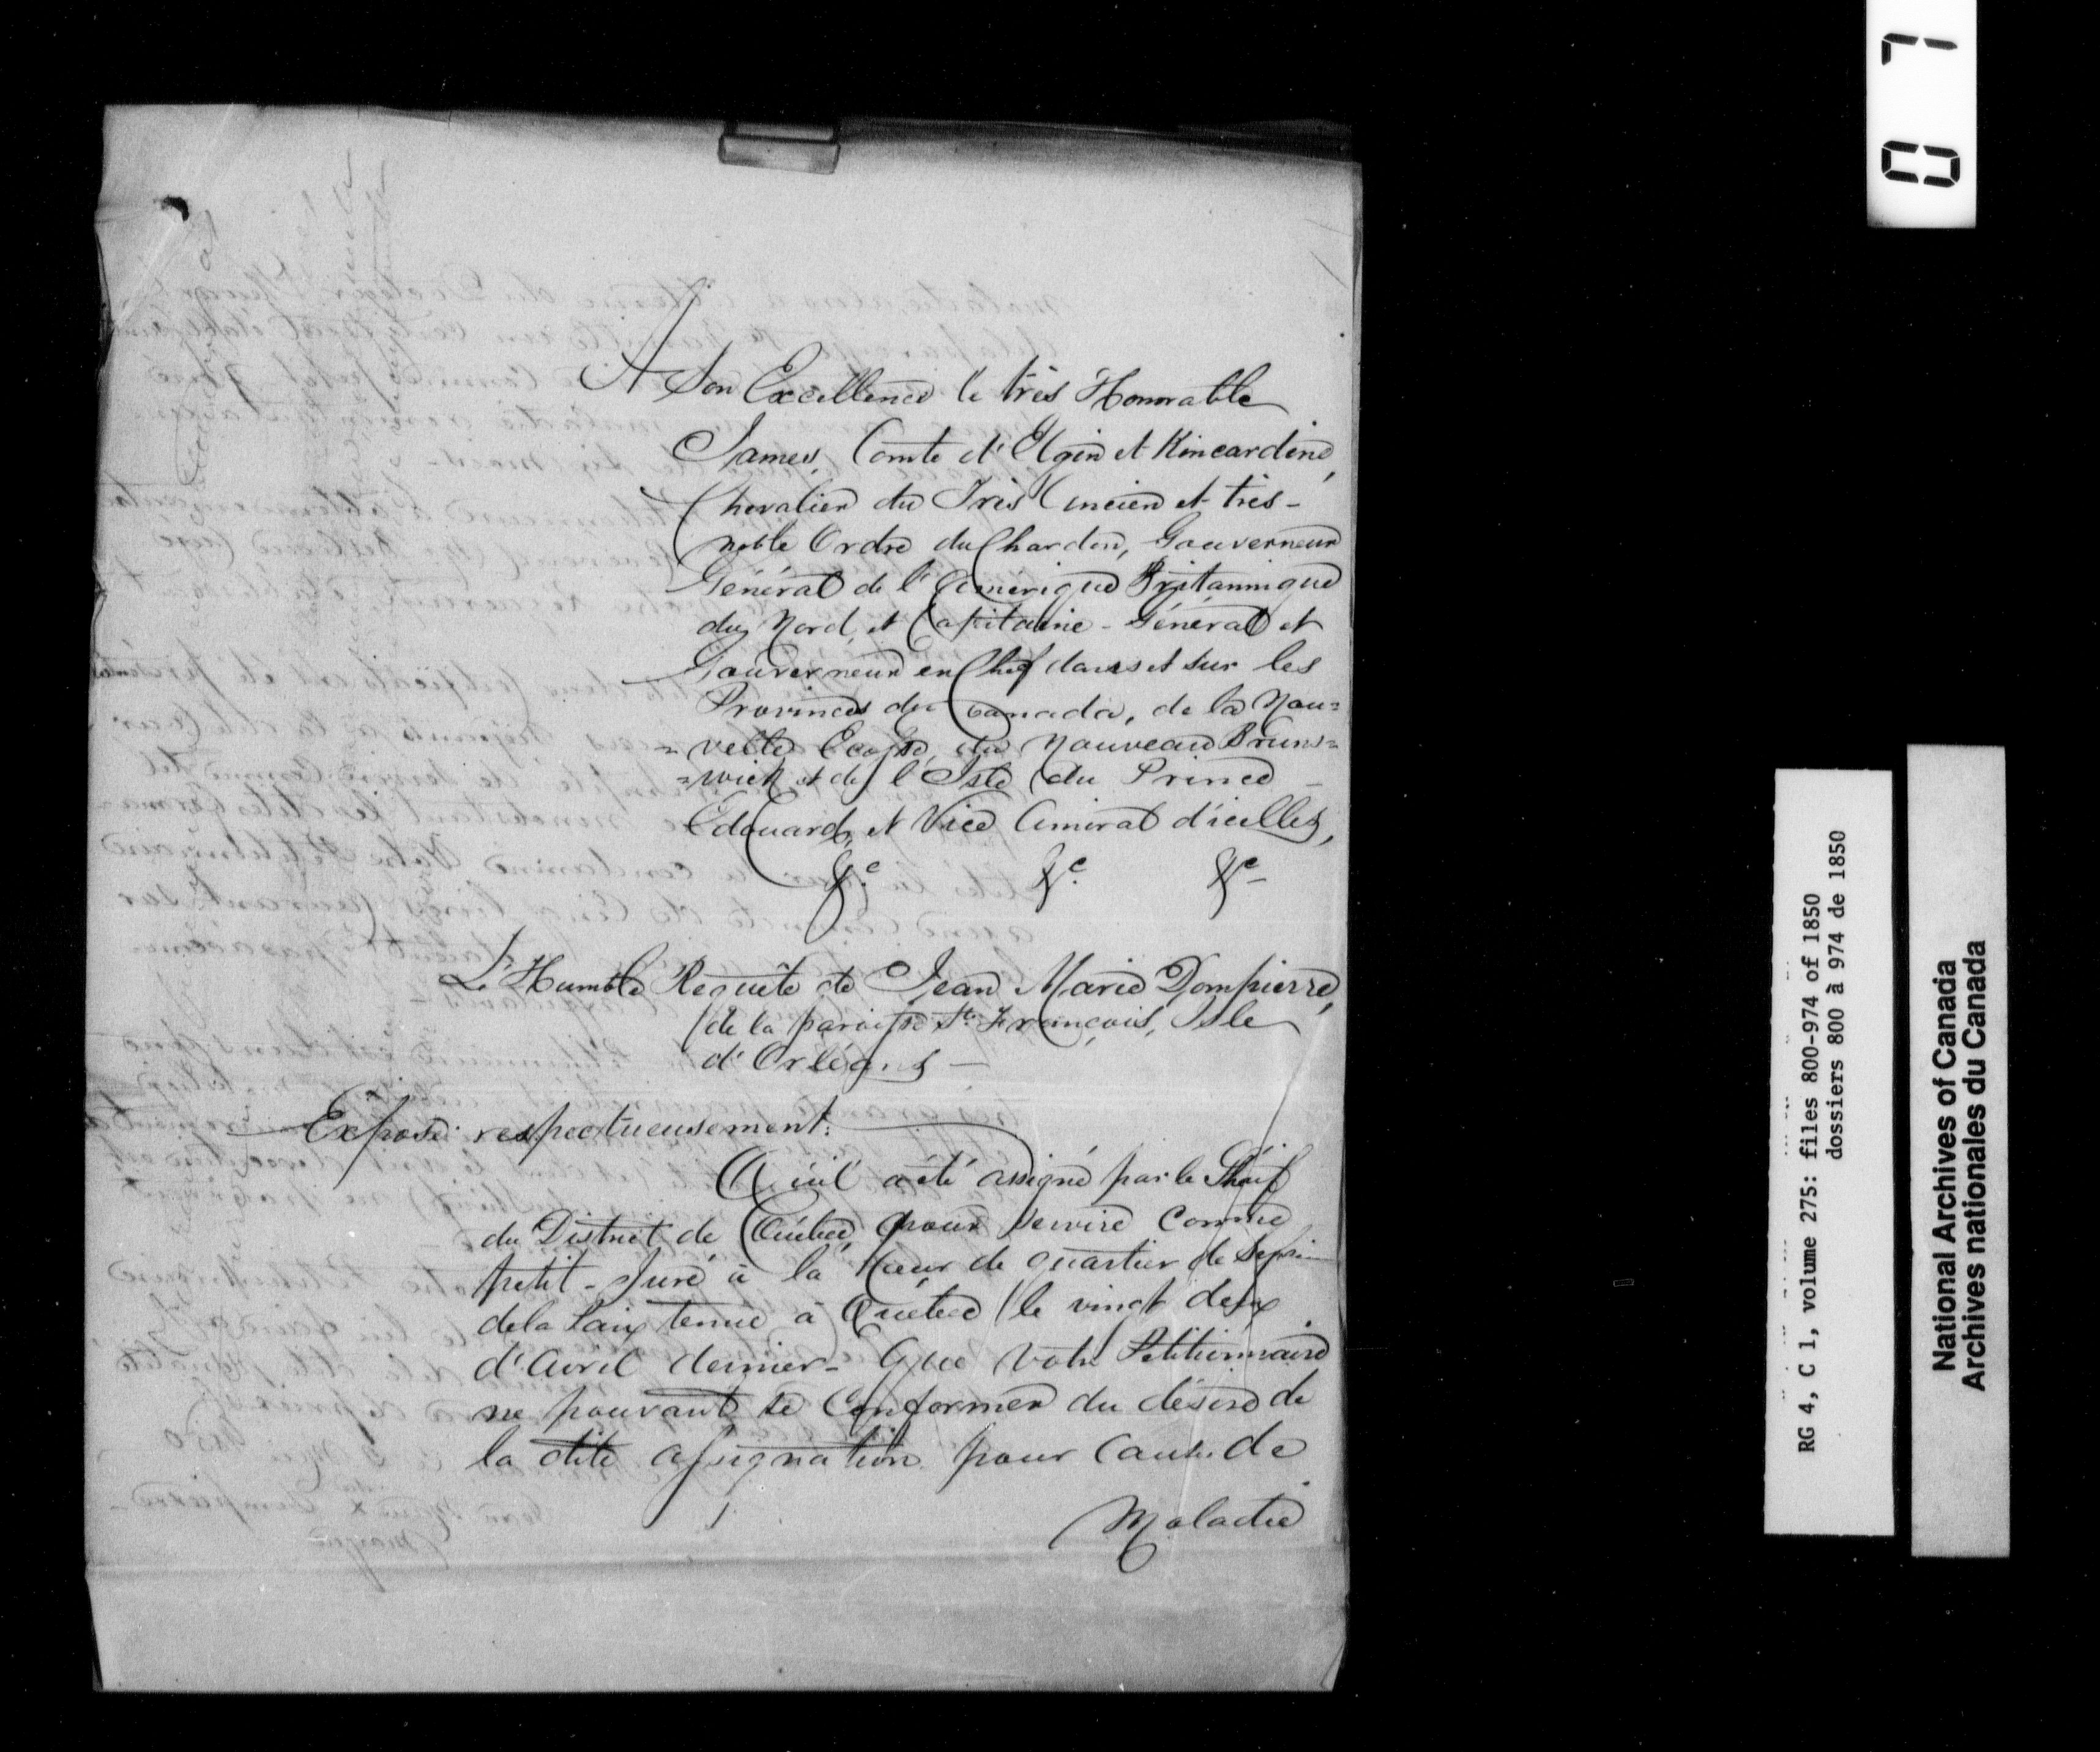 A Son Excellence le très Honorable
James, Comte d'Elgin et Kincardine,
Chevalier du Très Ancien et très-
noble Ordre du Chardon, Gouverneur
Général de l'Amérique Britannique
du Nord, et Capitaine-Général et
Gouverneur en Chef dans et sur les
Provinces du Canada, de la Nou=
=velle Ecosse, du Nouveau Bruns=
=wick et de l'Isle du Prince
Edouard, et Vice Amiral d'icelles,
&c. &c. &c-
L'Humble Requête de Jean Marie Dompierre,
de la paroisse St. François, Isle
d'Orléans —
Expose respectueusement:
Qu'il a été assigné par le Shérif
du District de Québec pour servire comme
petit-Juré à la Cour de quartier de
de la Paix tenue à Québec le vingt deux
d'Avril dernier- Que Votre Pétitionnaire
ne pouvant se Conformer du désire de
la dite assignation pour cause de
Maladie
07
RG 4, C 1, volume 275: files 800-974 of 1850
dossiers 800 à 974 de 1850
National Archives of Canada
Archives nationales du Canada